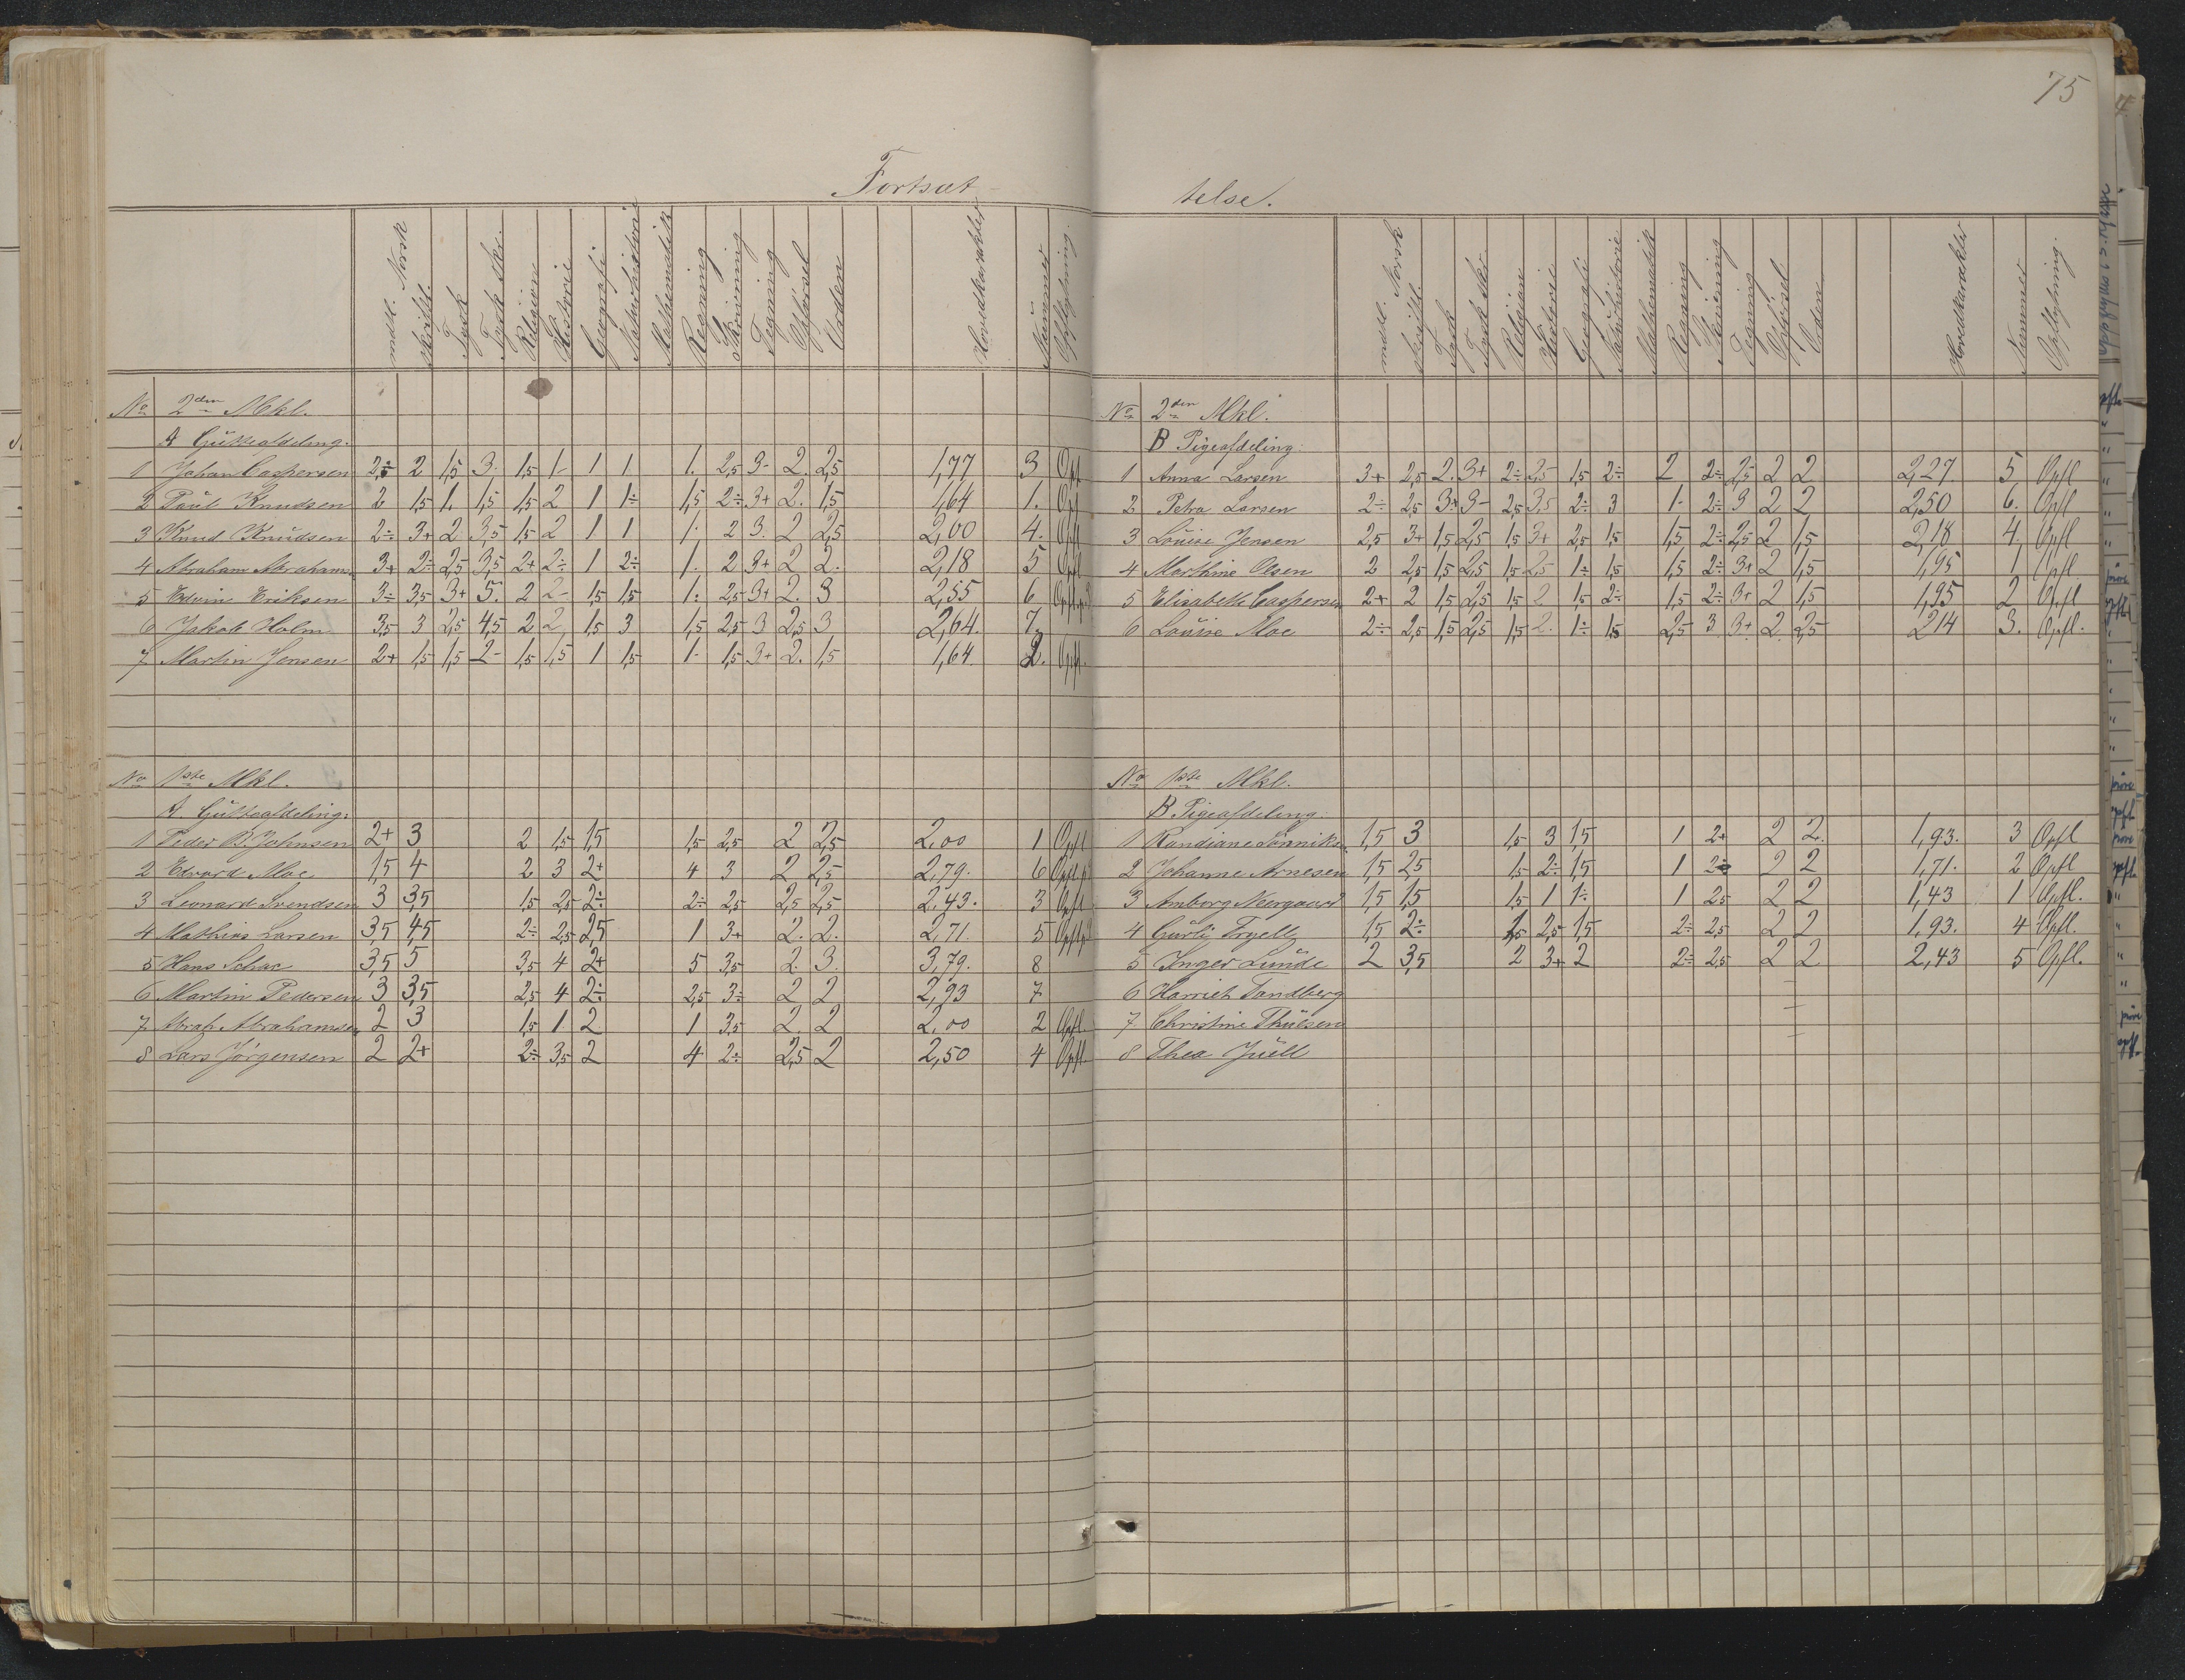 75
Fortsæt
telse.
mdtl. Norsk skriftl. Tysk Tysk skr. Religion Historie Geografi Naturhistorie Mathematik Regning Skrivning Tegning Opførsel Orden Hovedkarakter Nummer Opflytning.
No 2den Mkl.
A Gutteafdeling.
1 Johan Caspersen 2÷ 2 1,5 3- 1,5 1- 1 1 1. 2,5 3- 2. 2,5 1,77 3 Opfl
2 Paul Knudsen 2 1,5 1. 1,5 1,5 2 1 1÷ 1,5 2÷ 3+ 2. 1,5 1,64 1. Opfl
3 Knud Knudsen 2÷ 3+ 2 3,5 1,5 2 1 1 1. 2 3. 2 2,5 2,00 4. Opfl
4 Abraham Abraham. 3+ 2÷ 2,5 3,5 2+ 2÷ 1 2÷ 1. 2 3+ 2 2. 2,18 5 Opfl
5 Edvin Eriksen 3÷ 3,5 3+ 5. 2 2- 1,5 1,5 1. 2,5 3+ 2. 3 2,55 6
6 Jakob Holm 3,5 3 2,5 4,5 2 2 1,5 3 1,5 2,5 3 2,5 3 2,64. 7.
7 Martin Jensen 2+ 1,5 1,5 2- 1,5 1,5 1 1,5 1- 1,5 3+ 2. 1,5 1,64. 2. Opfl.
No 1ste Mkl.
A. Gutteafdeling:
1 Peder B. Johnsen 2+ 3 2 1,5 1,5 1,5 2,5 2 2,5 2,00 1 Opfl
2 Edvard Moe 1,5 4 2 3 2+ 4 3 2 2,5 2,79. 6
3 Leonard Svendsen 3 3,5 1,5 2,5 2÷ 2÷ 2,5 2,5 2,5 2.43. 3 Opfl
4 Mathias Larsen 3,5 4,5 2÷ 2,5 2,5 1 3+ 2. 2. 2,71. 5
5 Hans Schae 3,5 5 3,5 4 2+ 5 3,5 2. 3. 3,79. 8
6 Martin Pedersen 3 3,5 2,5 4 2÷ 2,5 3÷ 2 2 2,93 7
7 Abrah. Abrahamsen 2 3 1,5 1 2 1 3,5 2 2 2,00 2 Opfl.
8 Lars Jørgensen 2 2+ 2÷ 3,5 2 4 2÷ 2,5 2 2,50 4 Opfl
mdtl. Norsk skriftl. Tysk Tysk skr. Religion Historie Geografi Naturhistorie Mathematik Regning Skrivning Tegning Opførsel Orden Hovedkarakter Nummer Opflytning.
No 2den Mkl.
B Pigeafdeling:
1 Anna Larsen 3+ 2,5 2. 3+ 2÷ 2,5 1,5 2÷ 2 2÷ 2,5 2 2 2,27. 5 Opfl
2 Petra Larsen 2÷ 2,5 3+ 3- 2,5 3,5 2÷ 3 1- 2÷ 3 2 2 2,50 6. Opfl
3 Louise Jensen 2,5 3+ 1,5 2,5 1,5 3+ 2,5 1,5 1,5 2÷ 2,5 2 1,5 2,18 4. Opfl
4 Marthine Olsen 2 2,5 1,5 2,5 1,5 2,5 1÷ 1,5 1,5 2÷ 3+ 2 1,5 1,95 1 Opfl
5 Elisabeth Caspersen 2+ 2 1,5 2,5 1,5 2 1,5 2÷ 1,5 2÷ 3+ 2 1,5 1,95 2 Opfl
6 Louise Moe 2÷ 2,5 1,5 2,5 1,5 2. 1÷ 1,5 2,5 3 3+ 2. 2,5 2,14 3. Opfl.
No 1ste Mkl.
B Pigeafdeling:
1 Randiane Lønniks. 1,5 3 1,5 3 1,5 1 2+ 2 2. 1,93. 3 Opfl
2 Johanne Arnesen 1,5 2,5 1,5 2÷ 1,5 1 2÷ 2 2 1,71. 2 Opfl
3 Amborg Neergaard 1,5 1,5 1,5 1 1÷ 1 2,5 2 2 1,43 1 Opfl.
4 Gurli 1,5 2÷ 1,5 2,5 1,5 2÷ 2,5 2 2 1,93. 4 Opfl.
5 Inger Lunde 2 3,5 2 3+ 2 2÷ 2,5 2 2 2,43 5 Opfl.
6 Harriet Tandberg
7 Christine Thulsen
8 Thea Juell